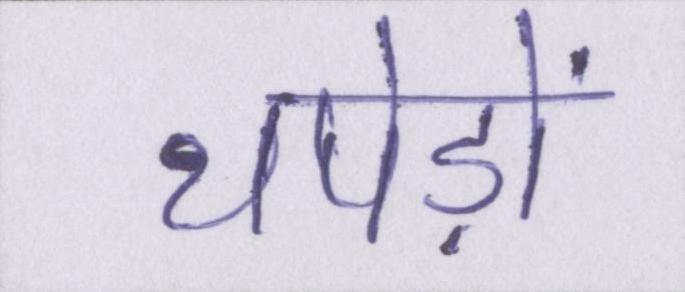 थपेड़ों